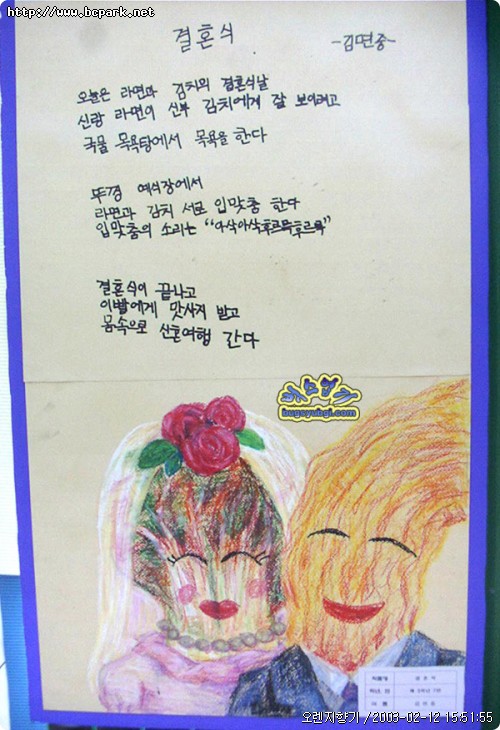 http://www.bcpark.net
결혼식
오늘은 라면과 김치의 결혼식날
신랑 라면이 신부 김치에게 잘 보이려고
국물 목욕탕에서 목욕을 한다
뚜껑 예식장에서
라면과 김치 서로 입맞춤 한다
입맞춤의 소리는 "아삭아삭후르륵후르륵"
결혼식이 끝나고
이빨에게 맛사지 받고
몸속으로 신혼여행 간다
벅스엽기
bugsyuhgi.com
작품명 결혼식
오렌지향기 / 2003-02-12 15:51:55